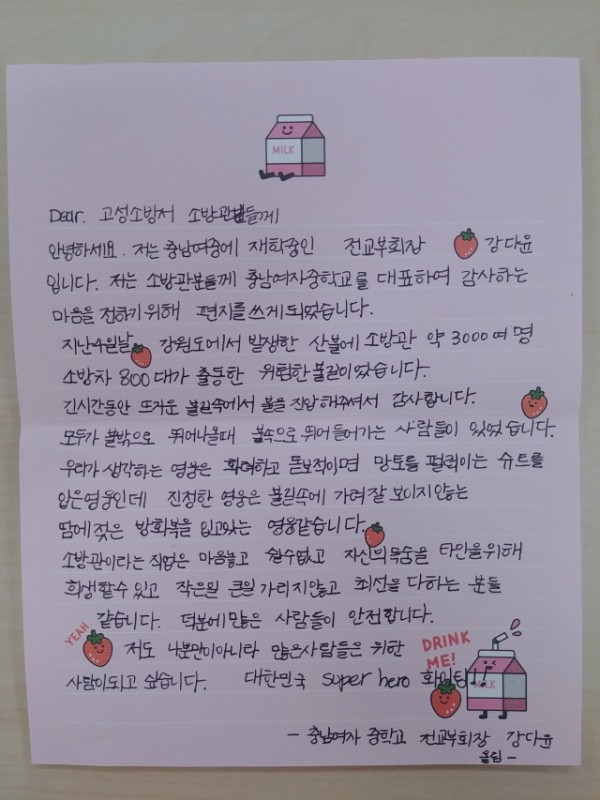 MILK
Dear. 고성소방서 소방관분들께
안녕하세요. 저는 충남여중에 재학중인 전교부회장 강다윤
입니다. 저는 소방관분들께 충남여자중학교를 대표하여 감사하는
마음을 전하기 위해 편지를 쓰게 되었습니다.
지난 4월날 강원도에서 발생한 산불에 소방관 약 3000여 명
소방차 800대가 출동한 위험한 불길이었습니다.
긴시간동안 뜨거운 불길속에서 불을 진압해주셔서 감사합니다.
모두가 불밖으로 뛰어나올때 불속으로 뛰어 들어가는 사람들이 있었습니다.
우리가 생각하는 영웅은 화려하고 돋보적이면 망토를 펄럭이는 슈트를
입은영웅인데 진정한 영웅은 불길속에 가려 잘 보이지않는
땀에 젖은 방화복을 입고있는 영웅같습니다.
소방관이라는 직업은 마음놓고 쉴수없고 자신의 목숨을 타인을위해
희생할수 있고 작은일 큰일 가리지않고 최선을 다하는 분들
같습니다. 덕분에 많은 사람들이 안전합니다.
YEAH
저도 나뿐만이아니라 많은사람들은 위한
사람이되고 싶습니다. 대한민국 super hero 화이팅!!
DRINK
ME!
MILK
- 충남여자 중학교 전교부회장 강다윤
올림 -